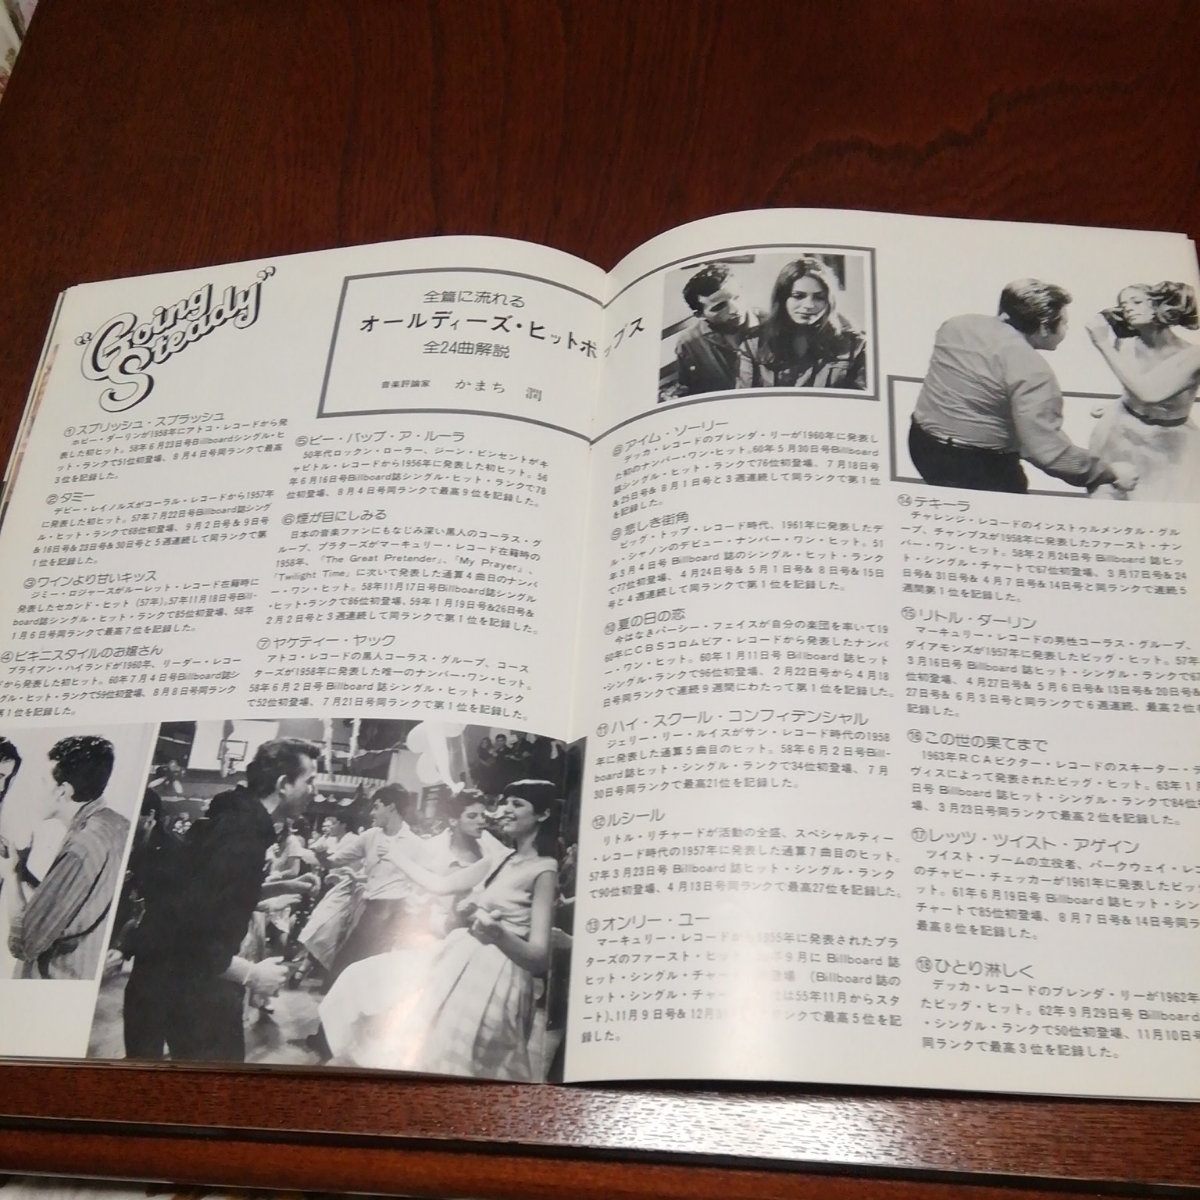 "Going
Steady"
全篇に流れる
オールディーズ・ヒットポップス
全24曲解説
音楽評論家 かまち 潤
①スプリッシュ・スプラッシュ
ボビー・ダーリンが1958年にアトコ・レコードから発
表した初ヒット。58年6月23日号Billboardシングル・ヒ
ット・ランクで51位初登場、8月4日号同ランクで最高
3位を記録した。
②タミー
デビー・レイノルズがコーラル・レコードから1957年
に発表した初ヒット。57年7月22日号Billboard誌シング
ル・ヒット・ランクで68位初登場、9月2日号&9日号
&16日号&23日号&30日号と5週連続して同ランクで第
1位を記録した。
③ワインより甘いキッス
ジミー・ロジャースがルーレット・レコード在籍時に
発表したセカンド・ヒット(57年)。57年11月18日号Bill-
board誌シングル・ヒット・ランクで85位初登場、58年
1月6日号同ランクで最高7位を記録した。
④ビキニスタイルのお嬢さん
ブライアン・ハイランドが1960年、リーダー・レコー
ドから発表した初ヒット。60年7月4日号Billboard誌シ
ングル・ヒット・ランクで59位初登場、8月8日号同ランク
第1位を記録した。
⑤ビー・バップ・ア・ルーラ
50年代ロックン・ローラー、ジーン・ビンセントがキ
ャピトル・レコードから1956年に発表した初ヒット。56
年6月16日号Billboard誌シングル・ヒット・ランクで78
位初登場、8月4日号同ランクで最高9位を記録した。
⑥煙が目にしみる
日本の音楽ファンにもなじみ深い黒人のコーラス・グ
ループ、プラターズがマーキュリー・レコード在籍時の
1958年、「The Great Pretender」、「My Prayer」、
「Twilight Time」に次いで発表した通算4曲目のナンバ
ー・ワン・ヒット。58年11月17日号Billboard誌シングル
・ヒット・ランクで86位初登場、59年1月19日号&26日号&
2月2日号と3週連続して同ランクで第1位を記録した。
⑦ヤケティー・ヤック
アトコ・レコードの黒人コーラス・グループ、コース
ターズが1958年に発表した唯一のナンバー・ワン・ヒット。
58年6月2日号Billboard誌シングル・ヒット・ランク
で52位初登場、7月21日号同ランクで第1位を記録した。
⑧アイム・ソーリー
デッカ・レコードのブレンダ・リーが1960年に発表し
た初のナンバー・ワン・ヒット。60年5月30日号Billboard
誌シングル・ヒット・ランクで76位初登場、7月18日号
&25日号&8月1日号と3週連続して同ランクで第1位
を記録した。
⑨悲しき街角
ビッグ・トップ・レコード時代、1961年に発表したデ
ル・シャノンのデビュー・ナンバー・ワン・ヒット。51
年3月4日号Billboard誌のシングル・ヒット・ランク
で77位初登場、4月24日号&5月1日号&8日号&15日
号と4週連続して同ランクで第1位を記録した。
⑩夏の日の恋
今はなきパーシー・フェイスが自分の楽団を率いて19
60年にCBSコロムビア・レコードから発表したナンバ
ー・ワン・ヒット。60年1月11日号Billboard誌ヒット
・シングル・ランクで96位初登場、2月22日号から4月18
日号同ランクで連続9週間にわたって第1位を記録した。
⑪ハイ・スクール・コンフィデンシャル
ジェリー・リー・ルイスがサン・レコード時代の1958
年に発表した通算5曲目のヒット。58年6月2日号Bill-
board誌ヒット・シングル・ランクで34位初登場、7月
30日号同ランクで最高21位を記録した。
⑫ルシール
リトル・リチャードが活動の全盛、スペシャルティー
・レコード時代の1957年に発表した通算7曲目のヒット。
57年3月23日号Billboard誌ヒット・シングル・ランク
で90位初登場、4月13日号同ランクで最高27位を記録した。
⑬オンリー・ユー
マーキュリー・レコードから1955年に発表されたプラ
ターズのファースト・ヒット 年9月にBillboard誌
ヒット・シングル・チャー 登場 (Billboard誌の
ヒット・シングル・チャー ては55年11月からスタ
ート)、11月9日号&12月 ランクで最高5位を記
録した。
⑭テキーラ
チャレンジ・レコードのインストゥルメンタル・グル
ープ、チャンプスが1958年に発表したファースト・ナン
バー・ワン・ヒット。58年2月24日号Billboard誌ヒッ
ト・シングル・チャートで67位初登場、3月17日号&24
日号&31日号&4月7日号&14日号と同ランクで連続5
週間第1位を記録した。
⑮リトル・ダーリン
マーキュリー・レコードの男性コーラス・グループ、
ダイアモンズが1957年に発表したビッグ・ヒット。57年
3月16日号Billboard誌ヒット・シングル・ランクで67
位初登場、4月27日号&5月6日号&13日号&20日号&
27日号&6月3日号と同ランクで6週連続、最高2位を
記録した。
⑯この世の果てまで
1963年RCAビクター・レコードのスキーター・デ
ヴィスによって発表されたビッグ・ヒット。63年1月
日号Billboard誌ヒット・シングル・ランクで84位初
場、3月23日号同ランクで最高2位を記録した。
⑰レッツ・ツイスト・アゲイン
ツイスト・ブームの立役者、パークウェイ・レコ
のチャビー・チェッカーが1961年に発表したビッ
ット。61年6月19日号Billboard誌ヒット・シン
チャートで85位初登場、8月7日号&14日号同ラ
最高8位を記録した。
⑱ひとり淋しく
デッカ・レコードのブレンダ・リーが1962年
たビッグ・ヒット。62年9月29日号Billboard
・シングル・ランクで50位初登場、11月10日号
同ランクで最高3位を記録した。